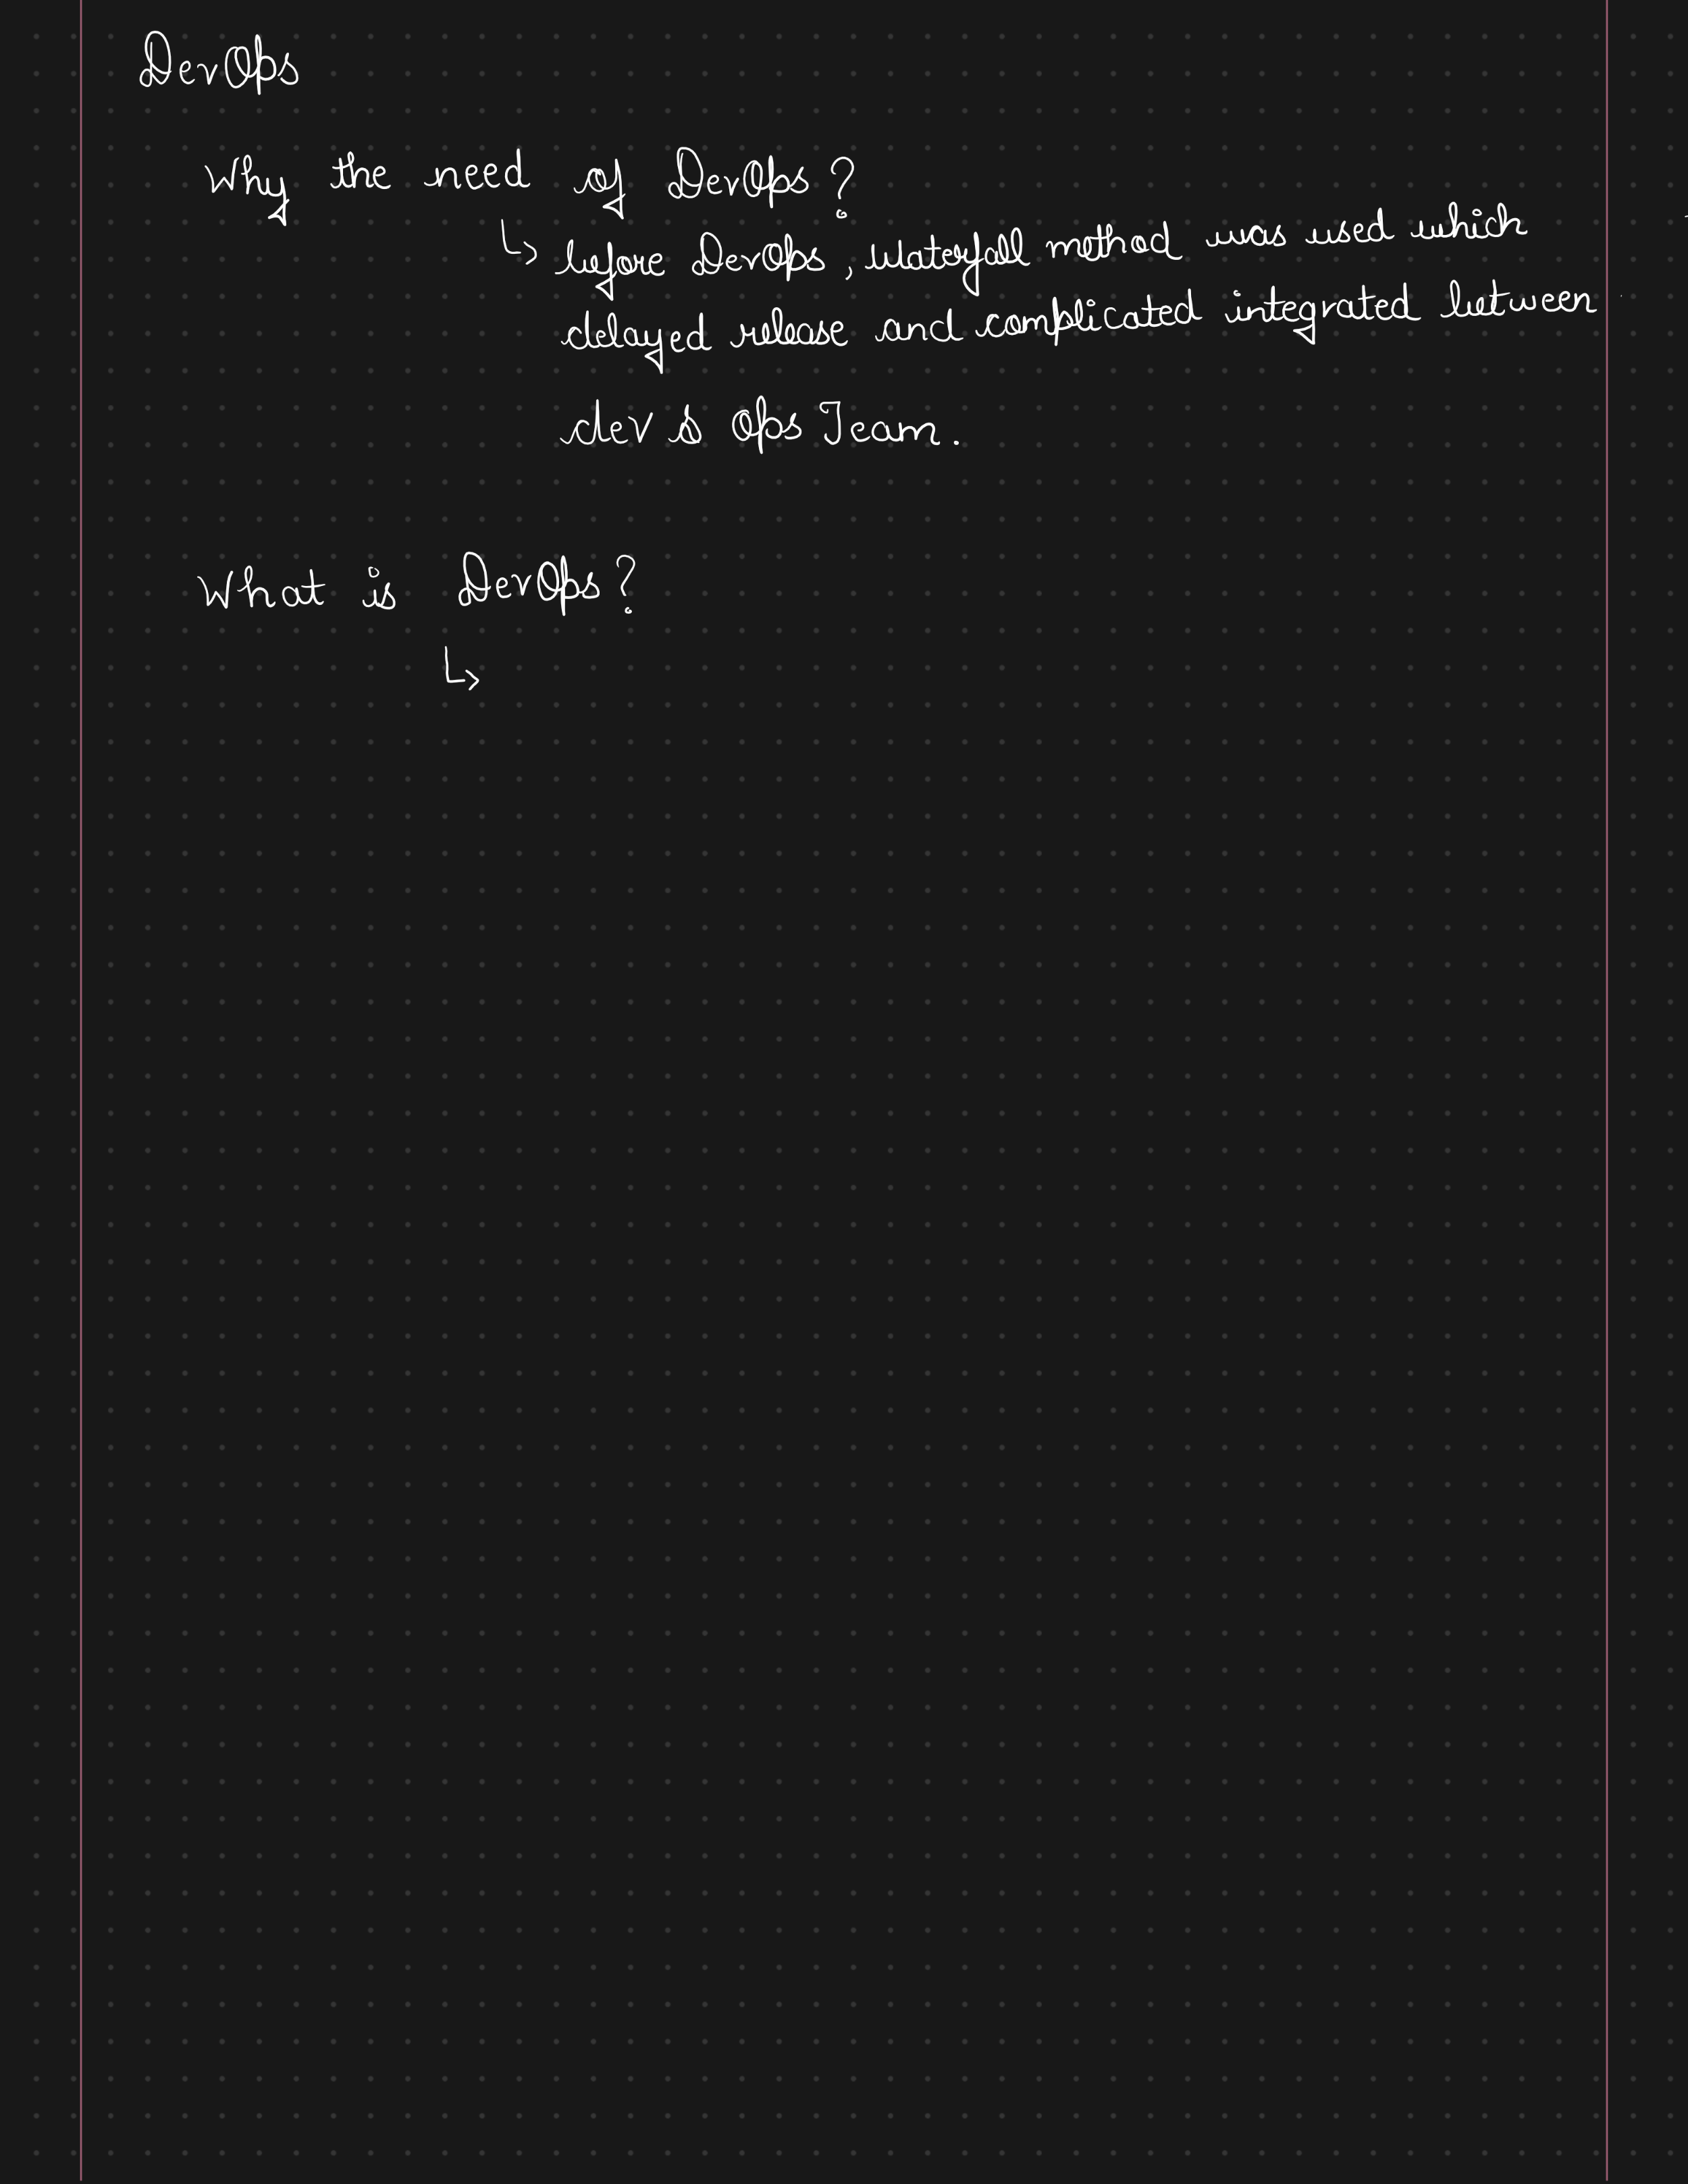 DevOps
Why the need of DevOps?
↳ before DevOps, waterfall method was used which
delayed release and complicated integrated between
dev & Ops Team.
What is DevOps?
↳